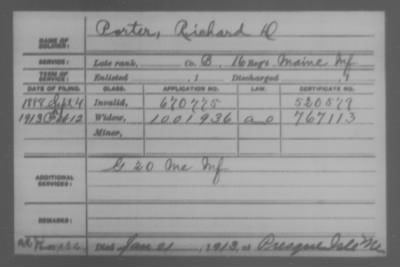 NAME OF SOLDIER: Porter, Richard D
SERVICE: Late rank, Co. B, 16 Reg't Maine Inf
TERM OF SERVICE: Enlisted , 1 Discharged , 1
DATE OF FILING. CLASS. APPLICATION NO. LAW. CERTIFICATE NO.
1888 Sept 4 Invalid, 670775 520579
1913 12 Widow, 1001936 767113
Minor,
ADDITIONAL SERVICES: G 20 Me Inf
REMARKS:
Died Jan 21, 1913, at Presque Isle Me